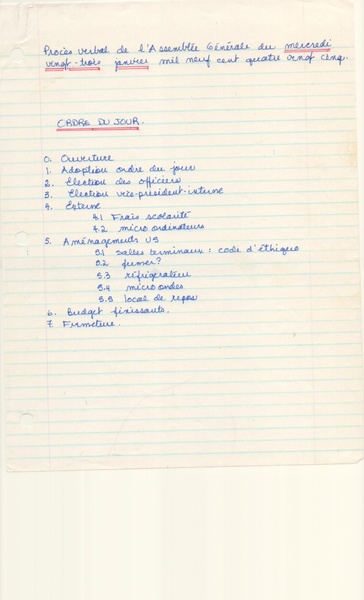 Procès verbal de l'Assemblée Générale du mercredi
vingt-trois janvier mil neuf cent quatre vingt cinq.
ORDRE DU JOUR.
0. Ouverture
1. Adoption ordre du jour
2. Election des officiers
3. Election vice-président-interne
4. Externe
4.1 Frais scolarité
4.2 micro ordinateurs
5. Aménagements US
5.1 Salles terminaux : code d'éthique
5.2 fumer?
5.3 réfrigérateur
5.4 micro ondes
5.5 local de repos
6. Budget finissants.
7. Fermeture.